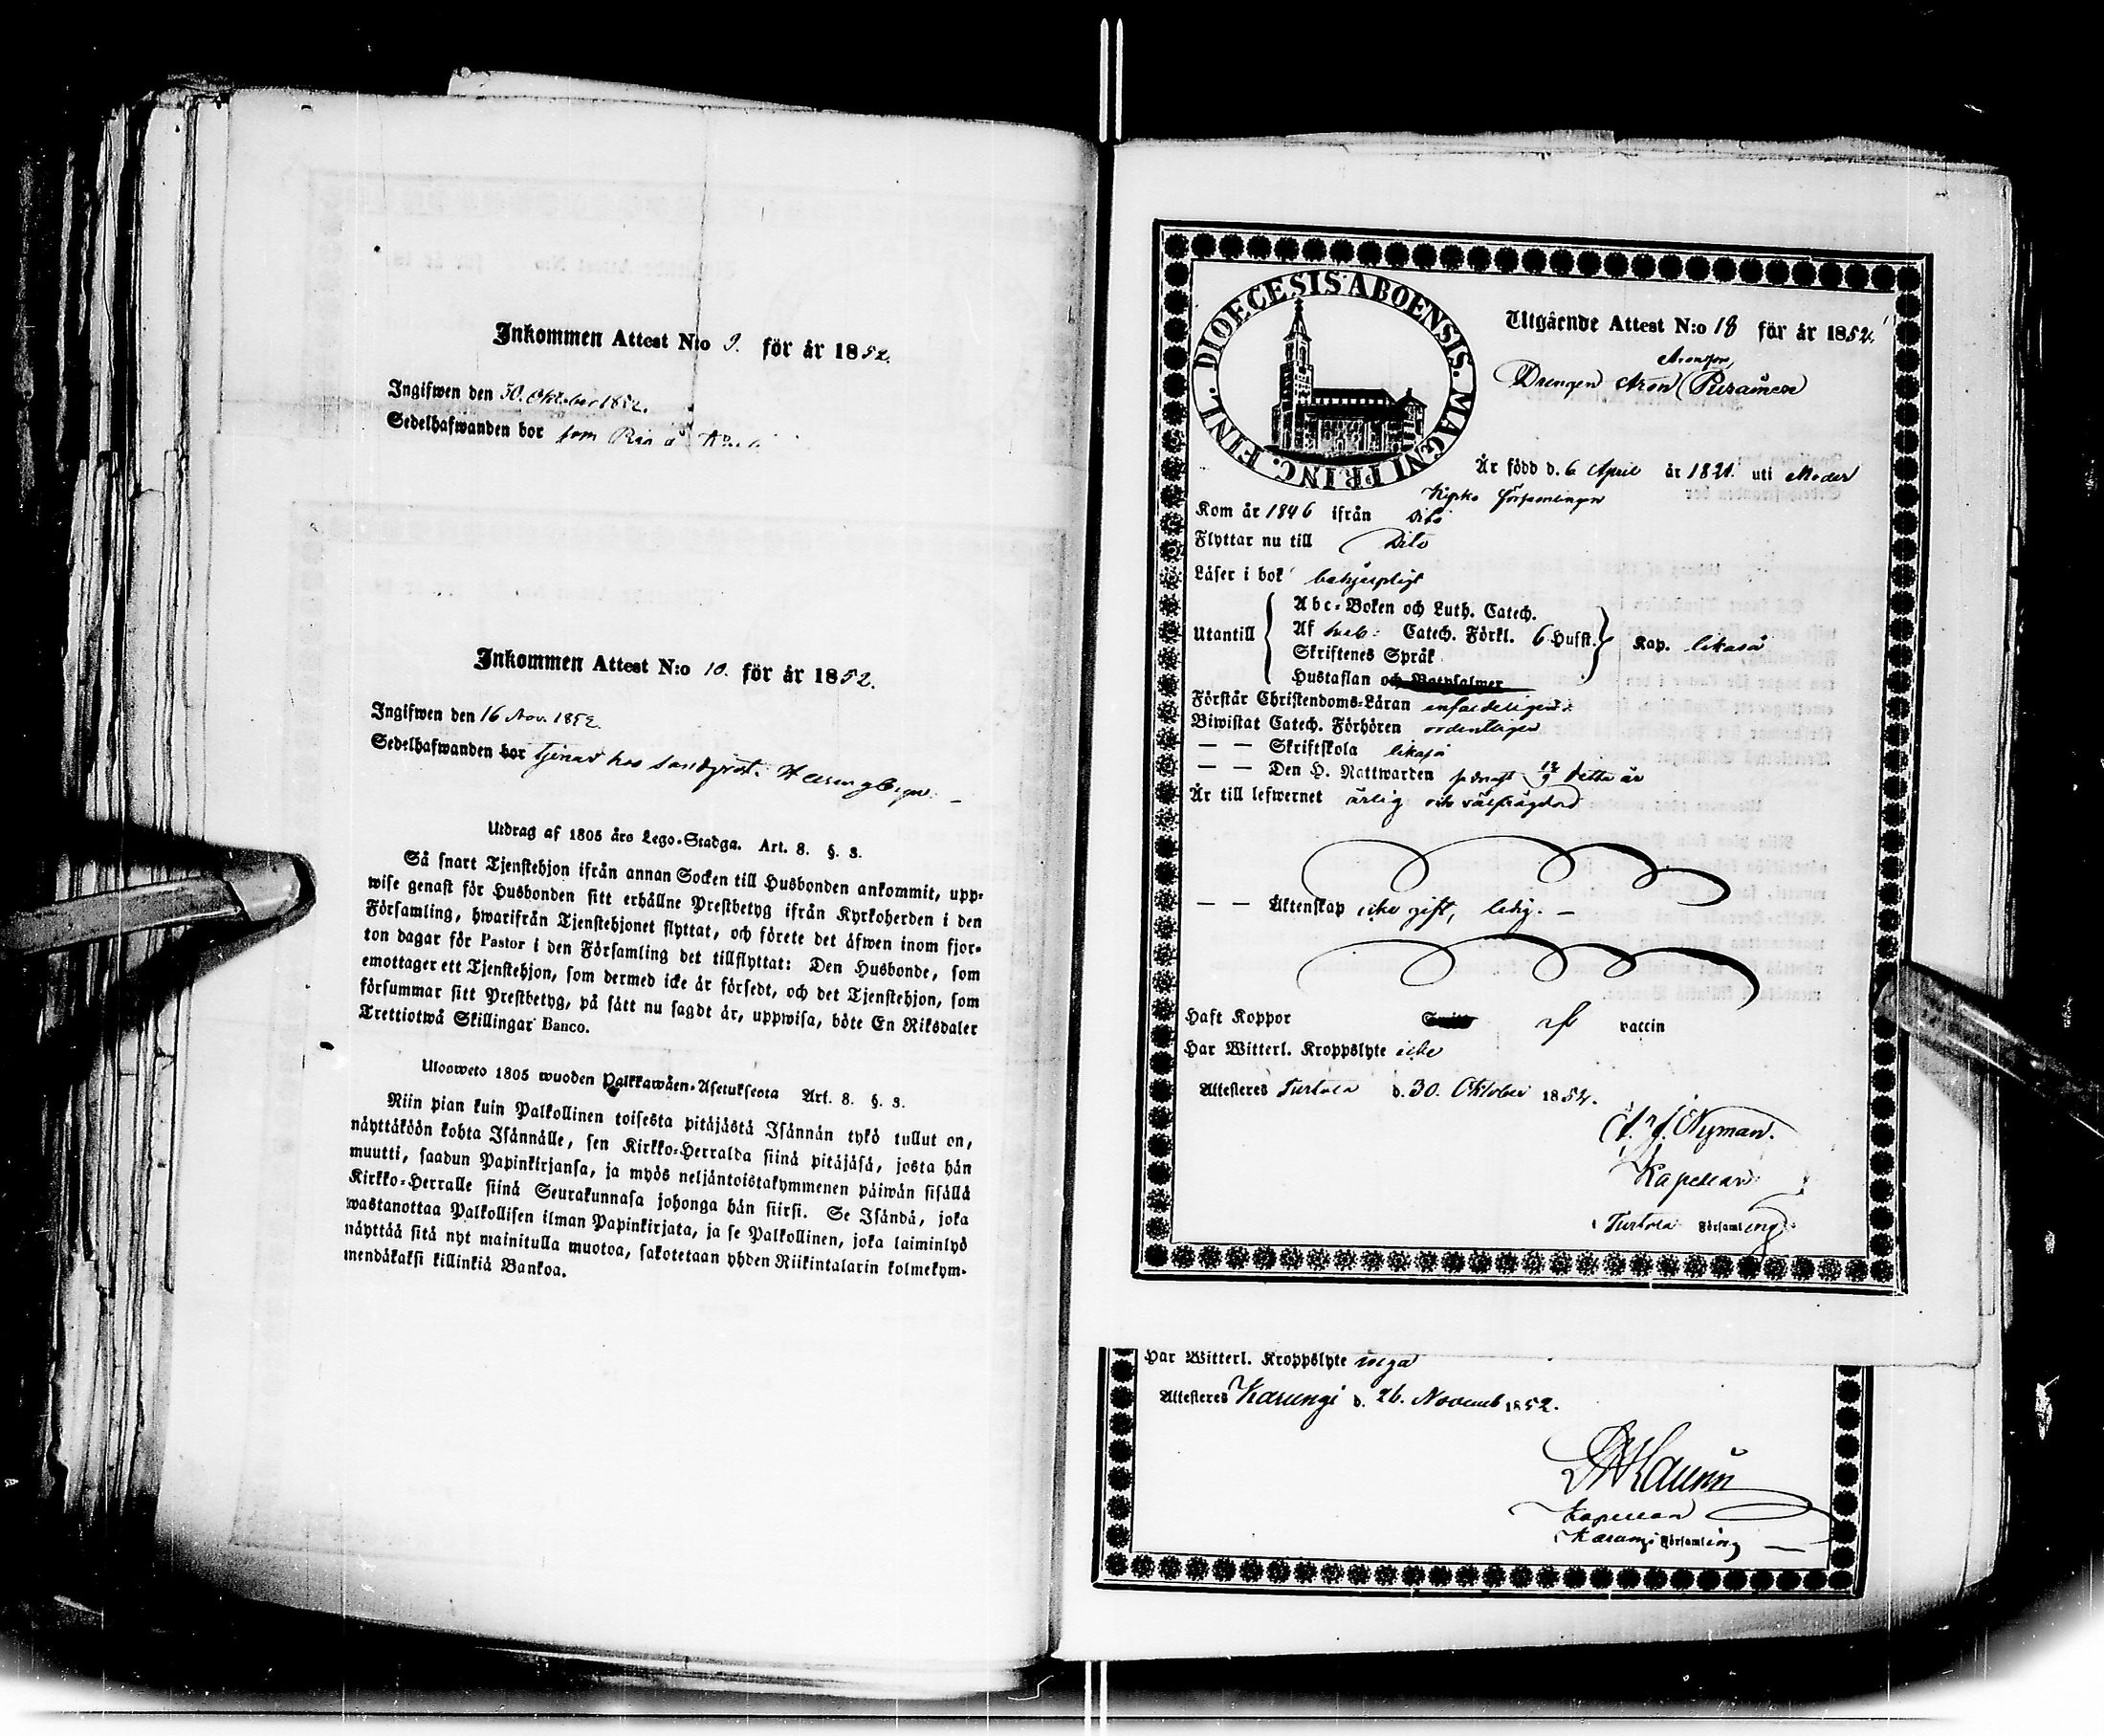 Inkommen Attest N:o 9. för år 1852.
Ingifwen den 30. Oktober 1852.
Sedelhafwanden bor som
Inkommen Attest N:o 10. för år 1852.
Ingifwen den 16 Nov. 1852.
Sedelhafwanden bor tjenar hos
Utdrag af 1805 års Lego-Stadga. Art. 8. §. 3.
Så snart Tjenstehjon ifrån annan Socken till Husbonden ankommit, upp-
wise genast för Husbonden sitt erhållne Prestbetyg ifrån Kyrkoherden i den
Församling, hwarifrån Tjenstehjonet flyttat, och förete det äfwen inom fjor-
ton dagar för Pastor i den Församling det tillflyttat: Den Husbonde, som
emottager ett Tjenstehjon, som dermed icke är försedt, och det Tjenstehjon, som
försummar sitt Prestbetyg, på sätt nu sagdt är, uppwisa, böte En Riksdaler
Trettiotwå Skillingar Banco.
Ulosweto 1805 wuoden Palkkawäen-Asetuksesta Art. 8. §. 3.
Niin pian kuin Palkollinen toisesta pitäjästä Isännän tykö tullut on,
näyttäköön kohta Isännälle, sen Kirkko-Herralda siinä pitäjäsä, josta hän
muutti, saadun Papinkirjansa, ja myös neljäntoistakymmenen päiwän sisällä
Kirkko-Herralle siinä Seurakunnasa johonga hän siirsi. Se Isändä, joka
wastanottaa Palkollisen ilman Papinkirjata, ja se Palkollinen, joka laiminlyö
näyttää sitä nyt mainitulla muotoa, sakotetaan yhden Riikintalarin kolmekym-
mendäkaksi killinkiä Bankoa.
DIOECESIS ABOENSIS. MAGNI PRINC. FINL.
Utgående Attest N:o 18 för år 1852.
Aronsson
Drengen Aron Puranen
Är född d. 6 April år 1821. uti Moder
Kyrko församlingen
Kom år 1846 ifrån Dito
Flyttar nu till Dito
Läser i bok behjelpligt
Utantill
Abc-Boken och Luth. Catech.
Af Sveb: Catech. Förkl. 6 Hufst. Kap. likaså
Skriftenes Språk
Hustaflan och Botpsalmer
Förstår Christendoms-Läran enfaldeligen
Biwistat Catech. Förhören ordentligen
— — Skriftskola likaså
— — Den H. Nattwarden sednast 12/9 detta år
Är till lefwernet ärlig och välfrägdad
— — Äktenskap icke gift, ledig. —
Haft Koppor af vaccin
Har Witterl. Kroppslyte icke
Attesteres Turtola d. 30. Oktober 1852.
Nyman.
Kapellan
Turtola Församling
Har Witterl. Kroppslyte inga
Attesteres Karungi d. 26. Novemb 1852.
Kapellan
Karungi Församling